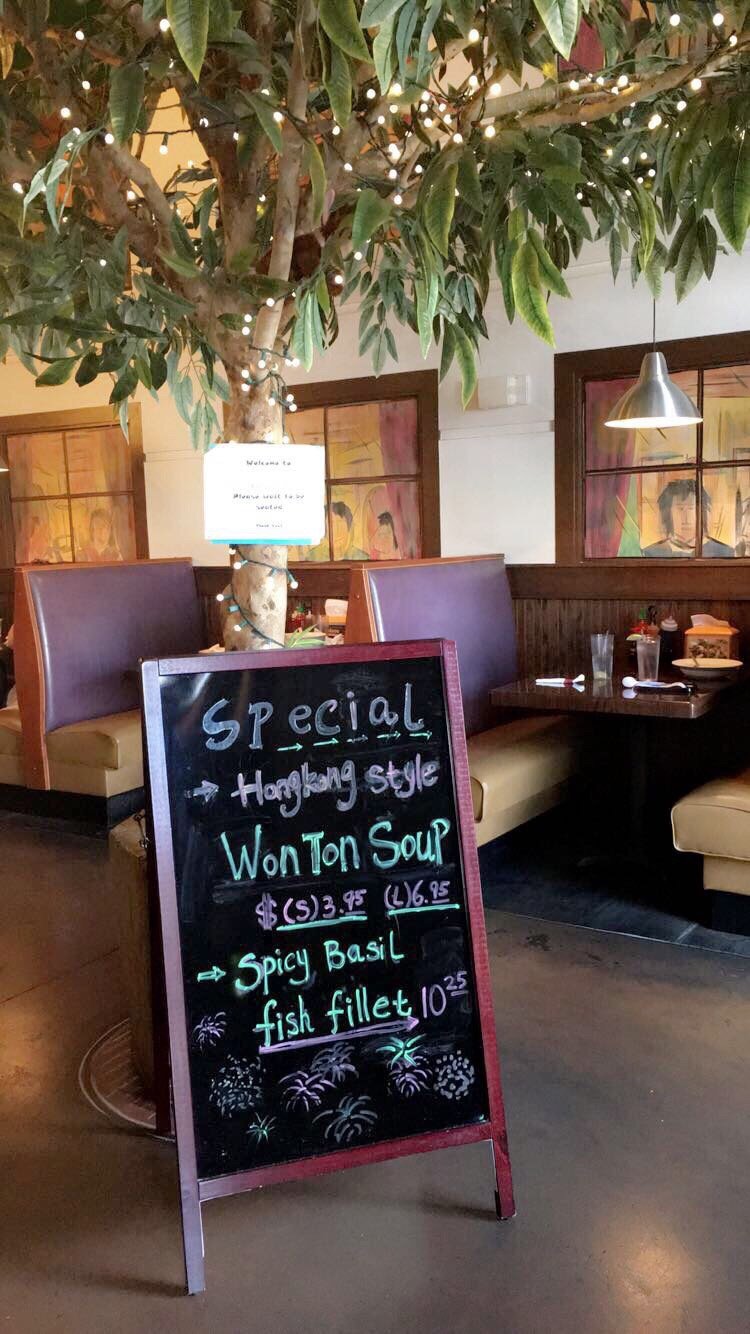 Welcome to
Please wait to be
seated
Thank you!
Special
→ Hongkong Style
Won Ton Soup
$ (S) 3.95 (L) 6.95
⇒ Spicy Basil
fish fillet 10 25